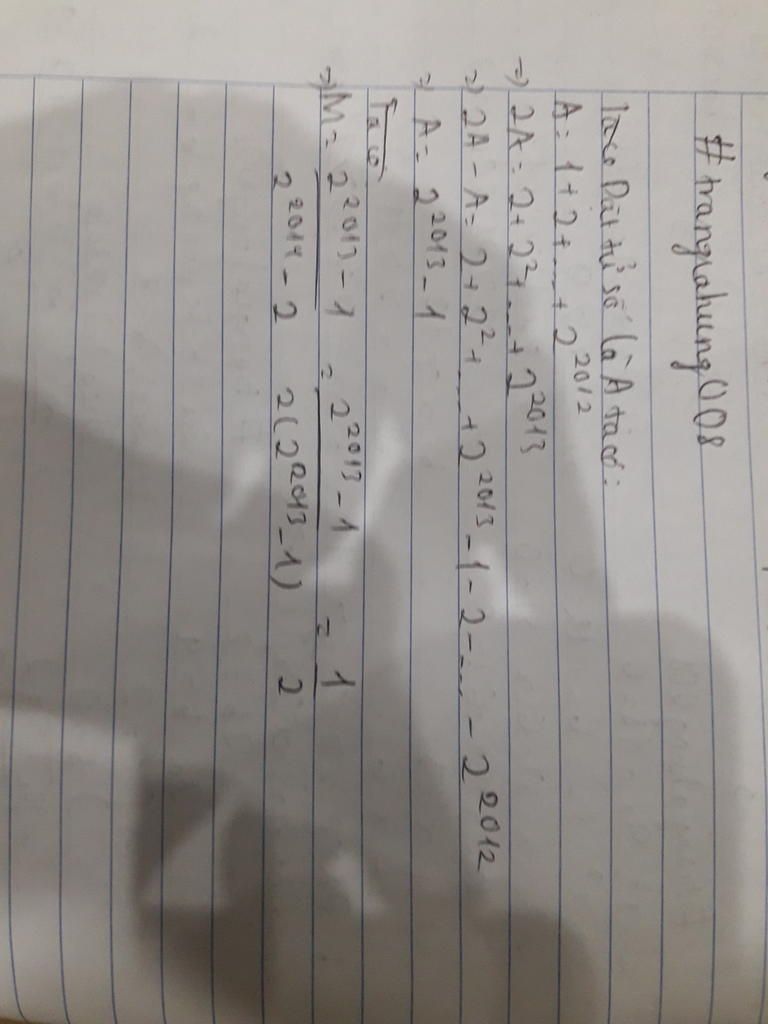 #trangiahung0108
Ta có Đặt tử số là A ta có:
A = 1 + 2 + ... + 2^2012
=> 2A = 2 + 2^2 + ... + 2^2013
=> 2A - A = 2 + 2^2 + ... + 2^2013 - 1 - 2 - ... - 2^2012
=> A = 2^2013 - 1
Ta có
=> M = 2^2013 - 1 / 2^2014 - 2 = 2^2013 - 1 / 2(2^2013 - 1) = 1 / 2